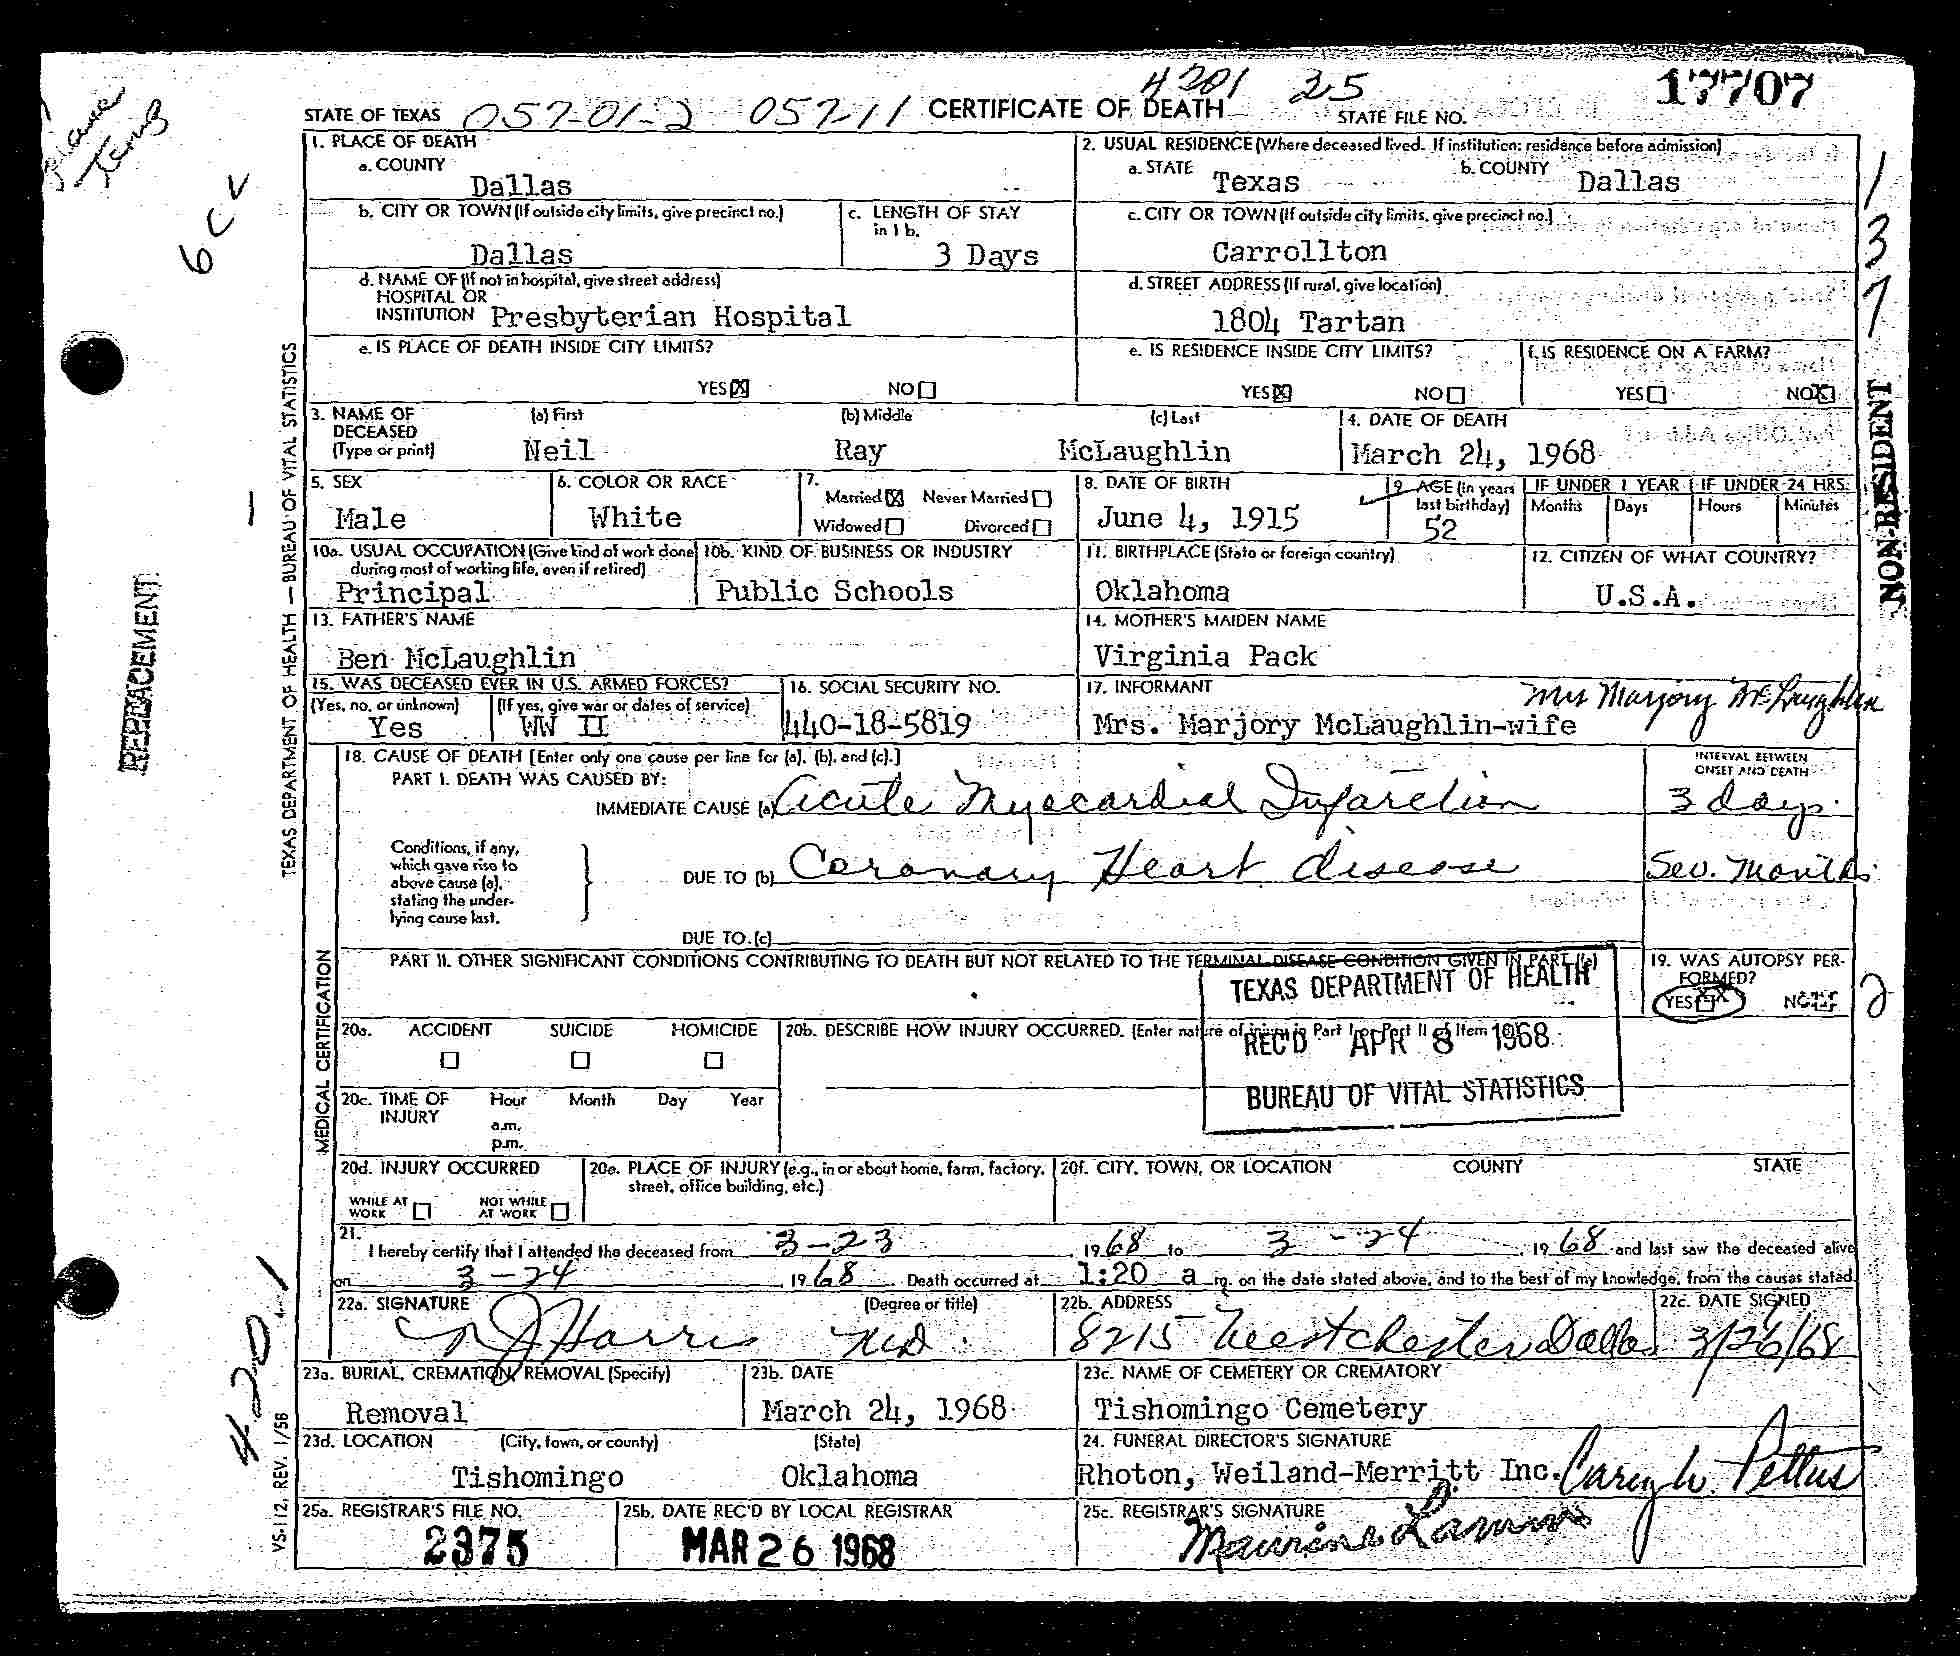 4201 25
17707
STATE OF TEXAS 057-01-2 057-11 CERTIFICATE OF DEATH STATE FILE NO.
1. PLACE OF DEATH
a. COUNTY
Dallas
2. USUAL RESIDENCE (Where deceased lived. If institution: residence before admission)
a. STATE Texas b. COUNTY Dallas
b. CITY OR TOWN (If outside city limits, give precinct no.)
Dallas
c. LENGTH OF STAY
in 1 b.
3 Days
c. CITY OR TOWN (If outside city limits, give precinct no.)
Carrollton
d. NAME OF (If not in hospital, give street address)
HOSPITAL OR
INSTITUTION Presbyterian Hospital
d. STREET ADDRESS (If rural, give location)
1804 Tartan
e. IS PLACE OF DEATH INSIDE CITY LIMITS?
YES X NO
e. IS RESIDENCE INSIDE CITY LIMITS?
YES X NO
f. IS RESIDENCE ON A FARM?
YES NO X
3. NAME OF
DECEASED
(Type or print)
(a) First (b) Middle (c) Last
Neil Ray McLaughlin
4. DATE OF DEATH
March 24, 1968
5. SEX
Male
6. COLOR OR RACE
White
7.
Married X Never Married
Widowed Divorced
8. DATE OF BIRTH
June 4, 1915
9. AGE (in years
last birthday)
52
IF UNDER 1 YEAR
Months Days
IF UNDER 24 HRS.
Hours Minutes
10a. USUAL OCCUPATION (Give kind of work done
during most of working life, even if retired)
Principal
10b. KIND OF BUSINESS OR INDUSTRY
Public Schools
11. BIRTHPLACE (State or foreign country)
Oklahoma
12. CITIZEN OF WHAT COUNTRY?
U.S.A.
13. FATHER'S NAME
Ben McLaughlin
14. MOTHER'S MAIDEN NAME
Virginia Pack
15. WAS DECEASED EVER IN U.S. ARMED FORCES?
(Yes, no, or unknown) (If yes, give war or dates of service)
Yes WW II
16. SOCIAL SECURITY NO.
440-18-5819
17. INFORMANT Mrs Marjory McLaughlin
Mrs. Marjory McLaughlin-wife
18. CAUSE OF DEATH [Enter only one cause per line for (a), (b), and (c).]
PART I. DEATH WAS CAUSED BY:
INTERVAL BETWEEN
ONSET AND DEATH
IMMEDIATE CAUSE (a) Acute Myocardial Infarction 3 days
Conditions, if any,
which gave rise to
above cause (a),
stating the under-
lying cause last.
DUE TO (b) Coronary Heart disease Sev. Months
DUE TO (c)
PART II. OTHER SIGNIFICANT CONDITIONS CONTRIBUTING TO DEATH BUT NOT RELATED TO THE TERMINAL DISEASE CONDITION GIVEN IN PART I(a)
19. WAS AUTOPSY PER-
FORMED?
YES NO
TEXAS DEPARTMENT OF HEALTH
REC'D APR 8 1968
BUREAU OF VITAL STATISTICS
20a. ACCIDENT SUICIDE HOMICIDE
20b. DESCRIBE HOW INJURY OCCURRED. (Enter nature of injury in Part I or Part II of Item 18.)
20c. TIME OF
INJURY
Hour Month Day Year
a.m.
p.m.
20d. INJURY OCCURRED
WHILE AT
WORK
NOT WHILE
AT WORK
20e. PLACE OF INJURY (e.g., in or about home, farm, factory,
street, office building, etc.)
20f. CITY, TOWN, OR LOCATION COUNTY STATE
21.
I hereby certify that I attended the deceased from 3-23 1968 to 3-24, 1968 and last saw the deceased alive
on 3-24, 1968. Death occurred at 1:20 a m. on the date stated above, and to the best of my knowledge, from the causes stated.
22a. SIGNATURE (Degree or title)
Harris MD.
22b. ADDRESS
8215 Westchester Dallas
22c. DATE SIGNED
3/26/68
23a. BURIAL, CREMATION, REMOVAL (Specify)
Removal
23b. DATE
March 24, 1968
23c. NAME OF CEMETERY OR CREMATORY
Tishomingo Cemetery
23d. LOCATION (City, town, or county) (State)
Tishomingo Oklahoma
24. FUNERAL DIRECTOR'S SIGNATURE
Rhoton, Weiland-Merritt Inc. Carey W. Pettus
25a. REGISTRAR'S FILE NO.
2375
25b. DATE REC'D BY LOCAL REGISTRAR
MAR 26 1968
25c. REGISTRAR'S SIGNATURE
Maurine
TEXAS DEPARTMENT OF HEALTH — BUREAU OF VITAL STATISTICS
MEDICAL CERTIFICATION
VS-112, REV. 1/58
REPLACEMENT
420.1
137
NON-RESIDENT
2